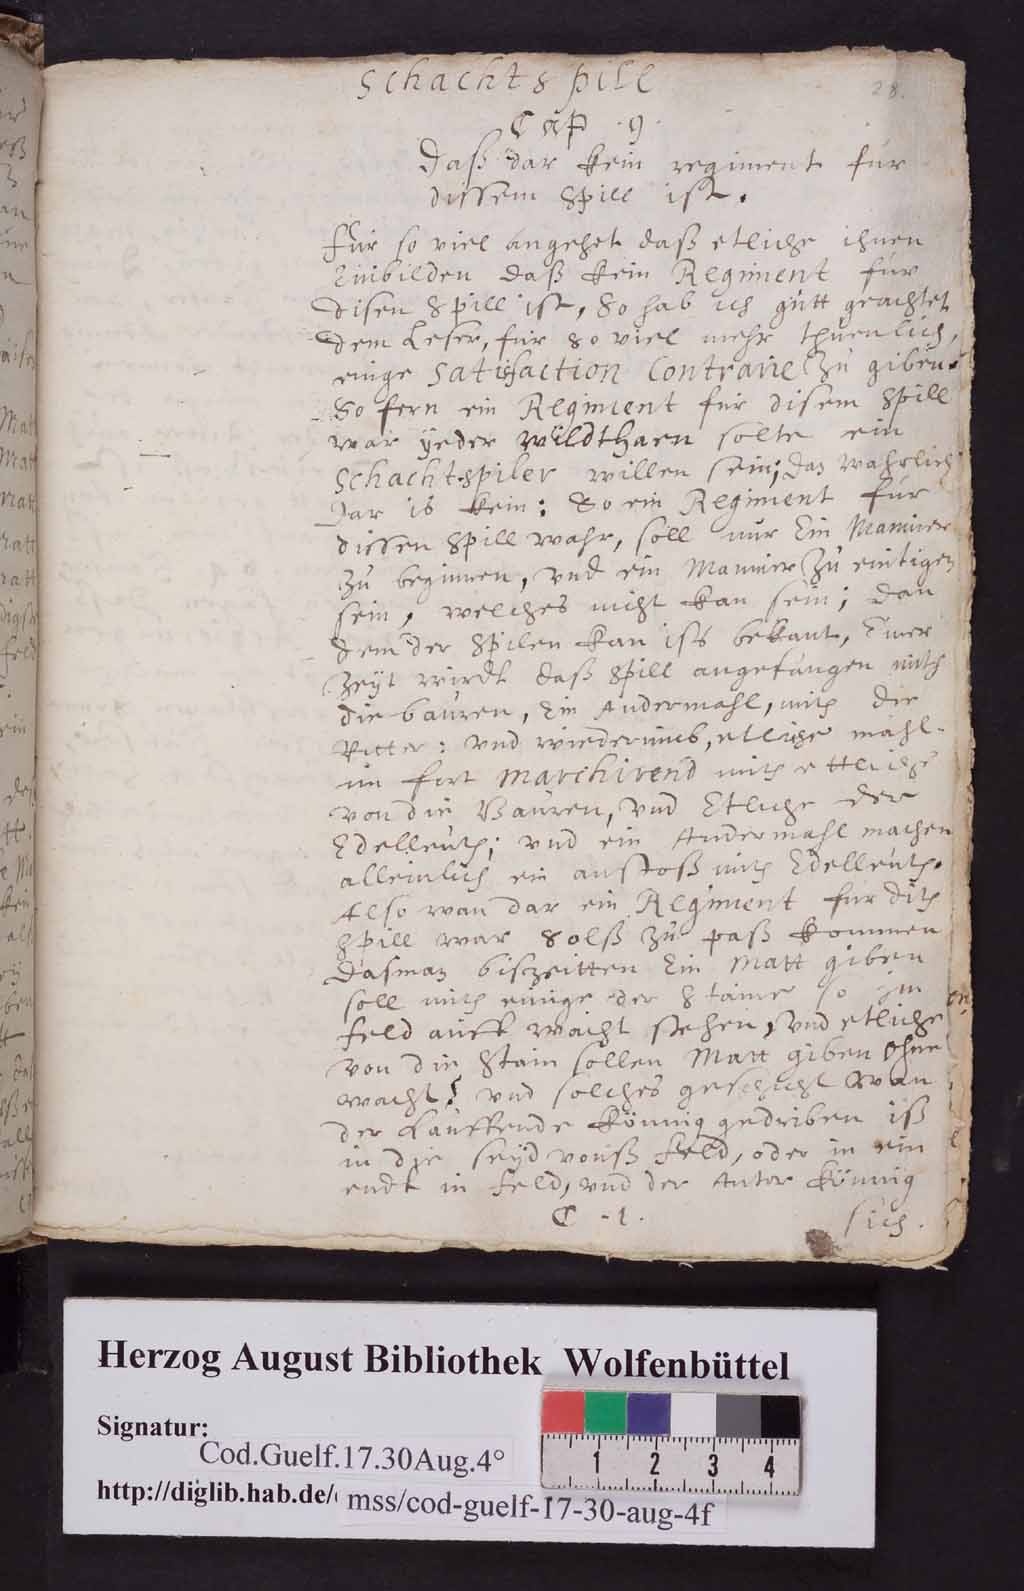 Schachtspill
28.
Cap 9.
Daß dar kein regiment für
dissem Spill ist.
Für so viel angehet daß etliche ihnen
Einbilden daß kein Regiment für
disen Spill ist, So hab ich gutt geachtet
dem Leser, für so viel mehr thuenlich,
einige Satisfaction Contrarie zu giben.
So fern ein Regiment für disem Spill
war yeder wildthaen solte ein
Schachtspiler willen sein; daz wahrlich
dar is kein: So ein Regiment für
dissen Spill wahr, soll nur Ein Manner
zu beginnen, vnd ein Manner zu eintigen
sein, welches nicht kan sein; dan
dem der Spilen kan ists bekant, Einer
Zeyt wirdt daß Spill angefangen mith
die bauren, Ein Andermahl, mith die
Ritter: vnd wiederumb, etliche mahl.
im fort marchirend mith ettliche
von die Bauren, vnd Etliche der
Edelleuth; vnd ein Andermahl machen
alleinlich ein anstoß mith Edelleuth.
Also wan dar ein Regiment für dith
Spill war Solß zu paß kommen
dasmaz biszeitten Ein Matt giben
soll mith einige der Staine so im
feld auff wacht stehen, vnd etliche
von die Stain sollen Matt giben ohne
wacht; vnd solches geschicht wan
der Lauffende Könnig gedriben iß
in die seyd vonß feld, oder in ein
endt in feld, vnd der Anter Könnig
C - 1.
sich.
Herzog August Bibliothek Wolfenbüttel
Signatur:
Cod.Guelf.17.30Aug.4°
http://diglib.hab.de/
mss/cod-guelf-17-30-aug-4f
1 2 3 4